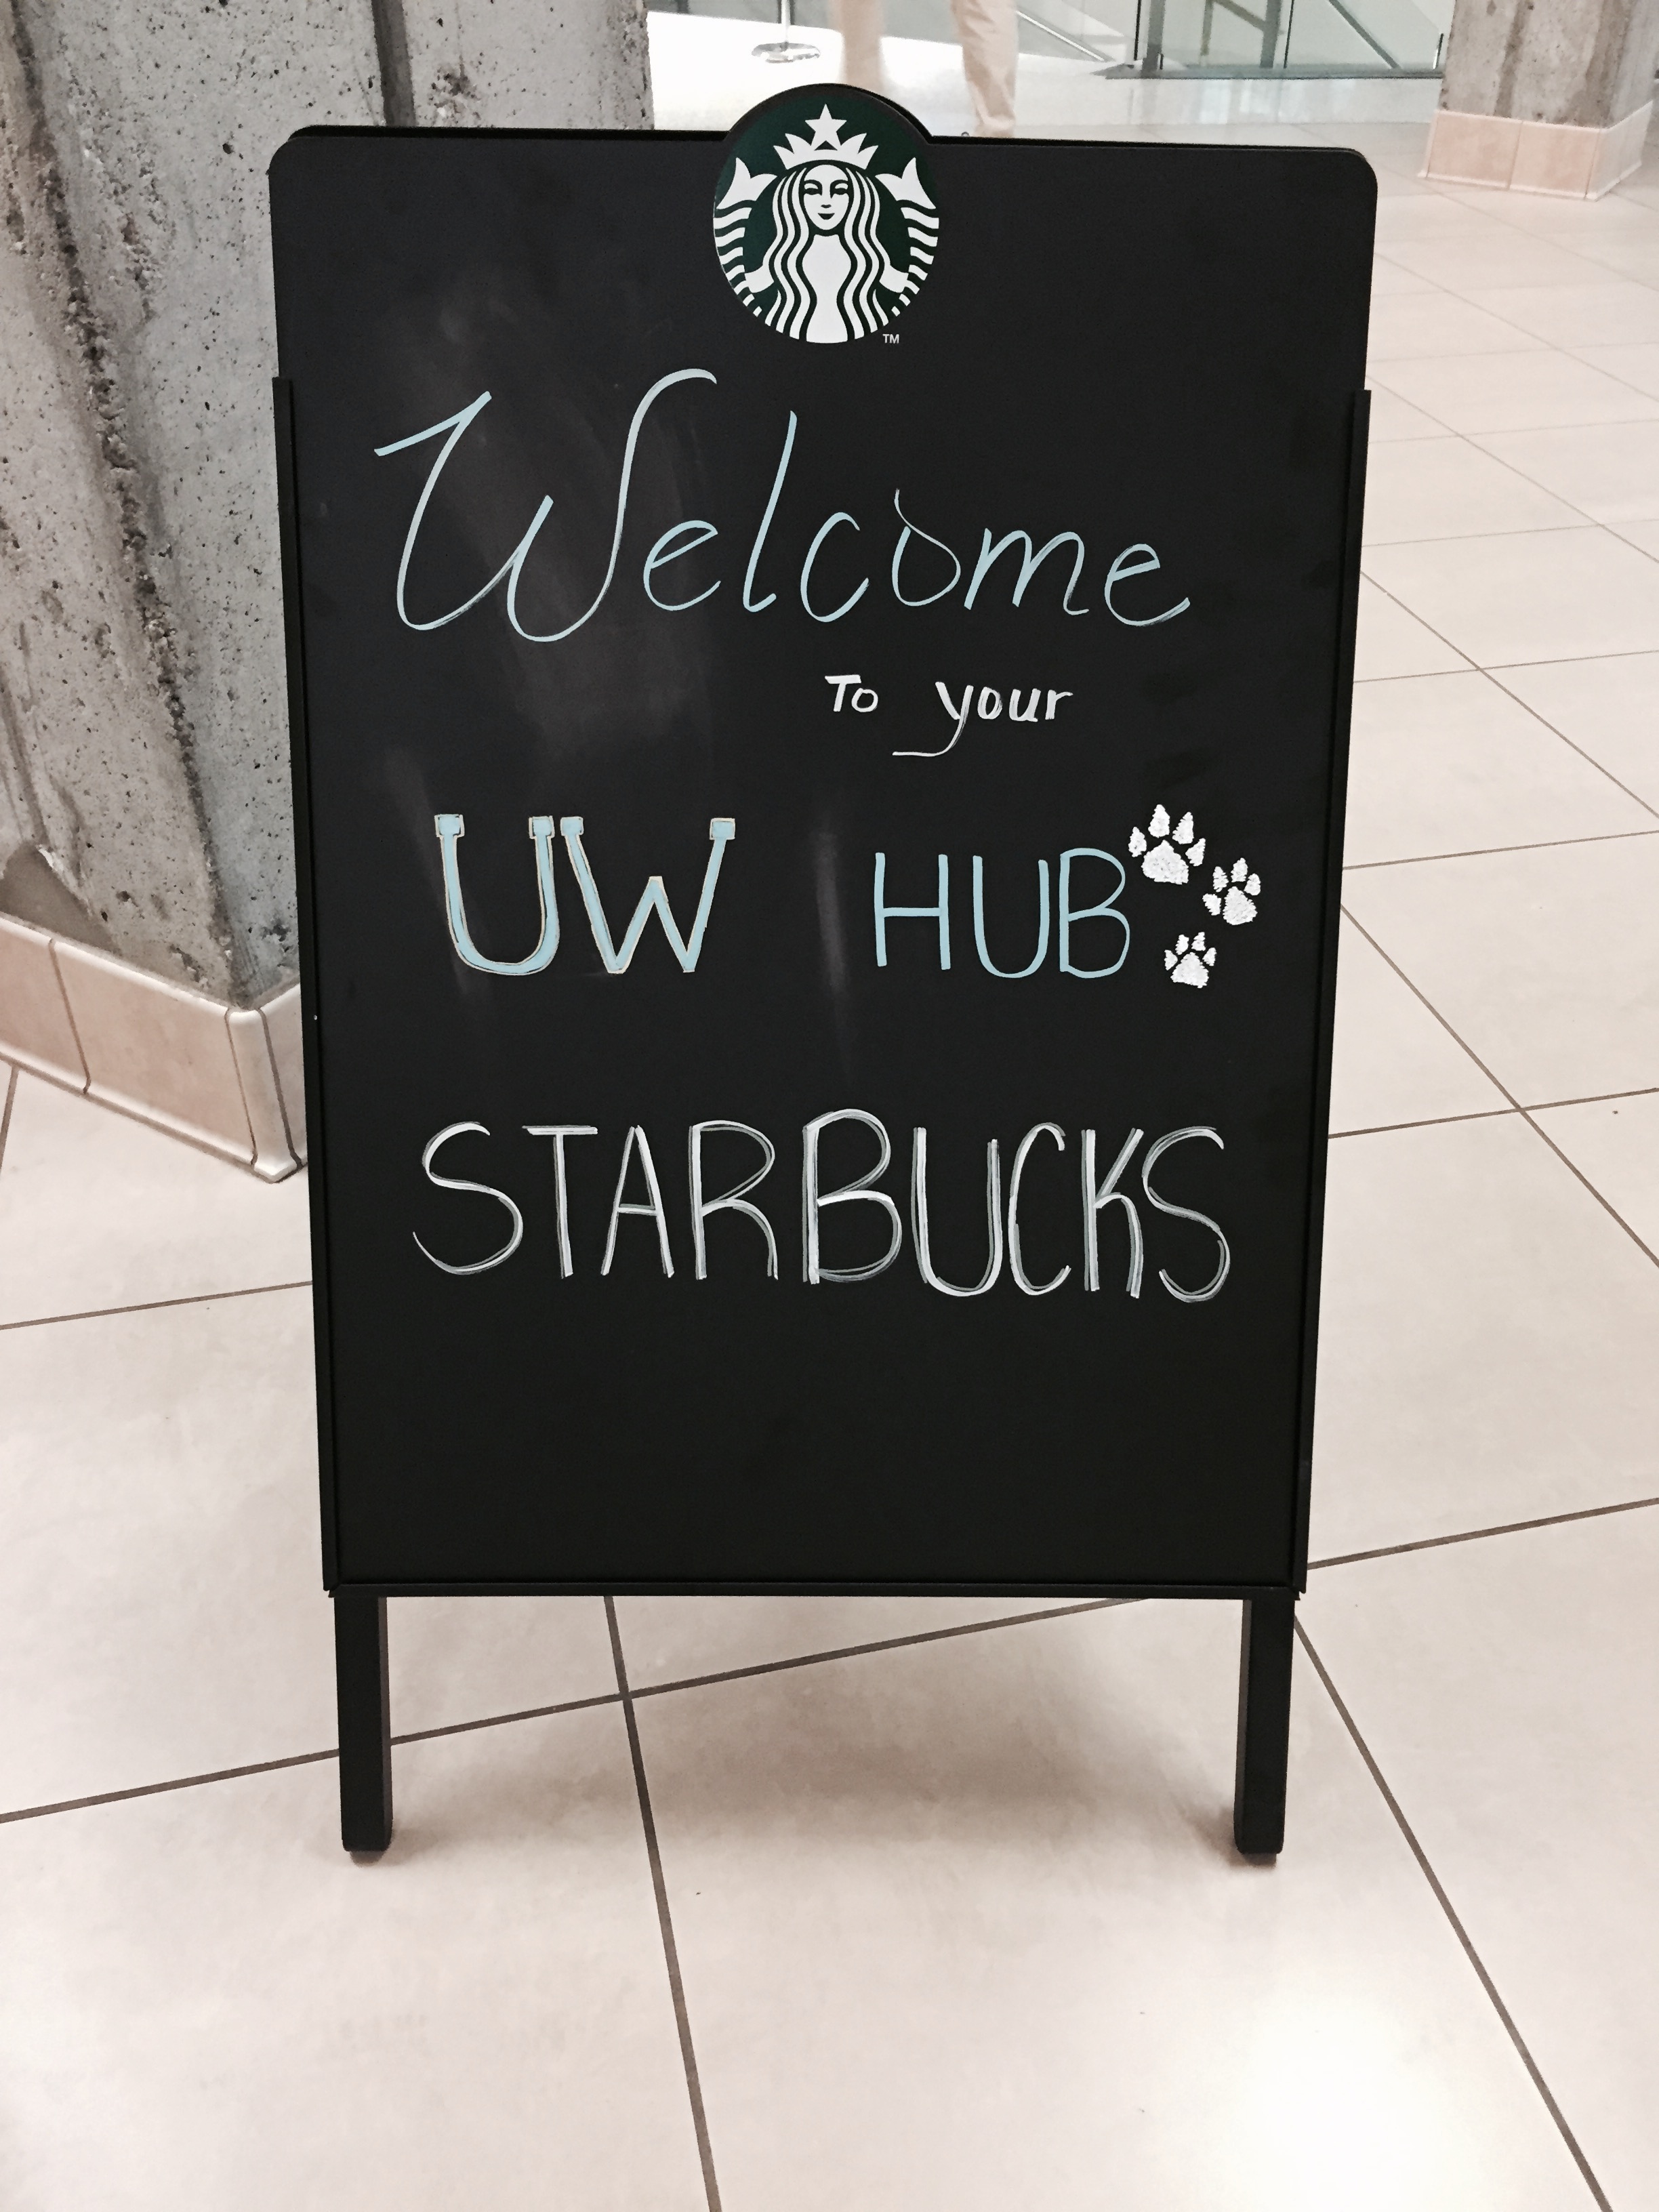 TM
Welcome
To your
UW HUB
STARBUCKS